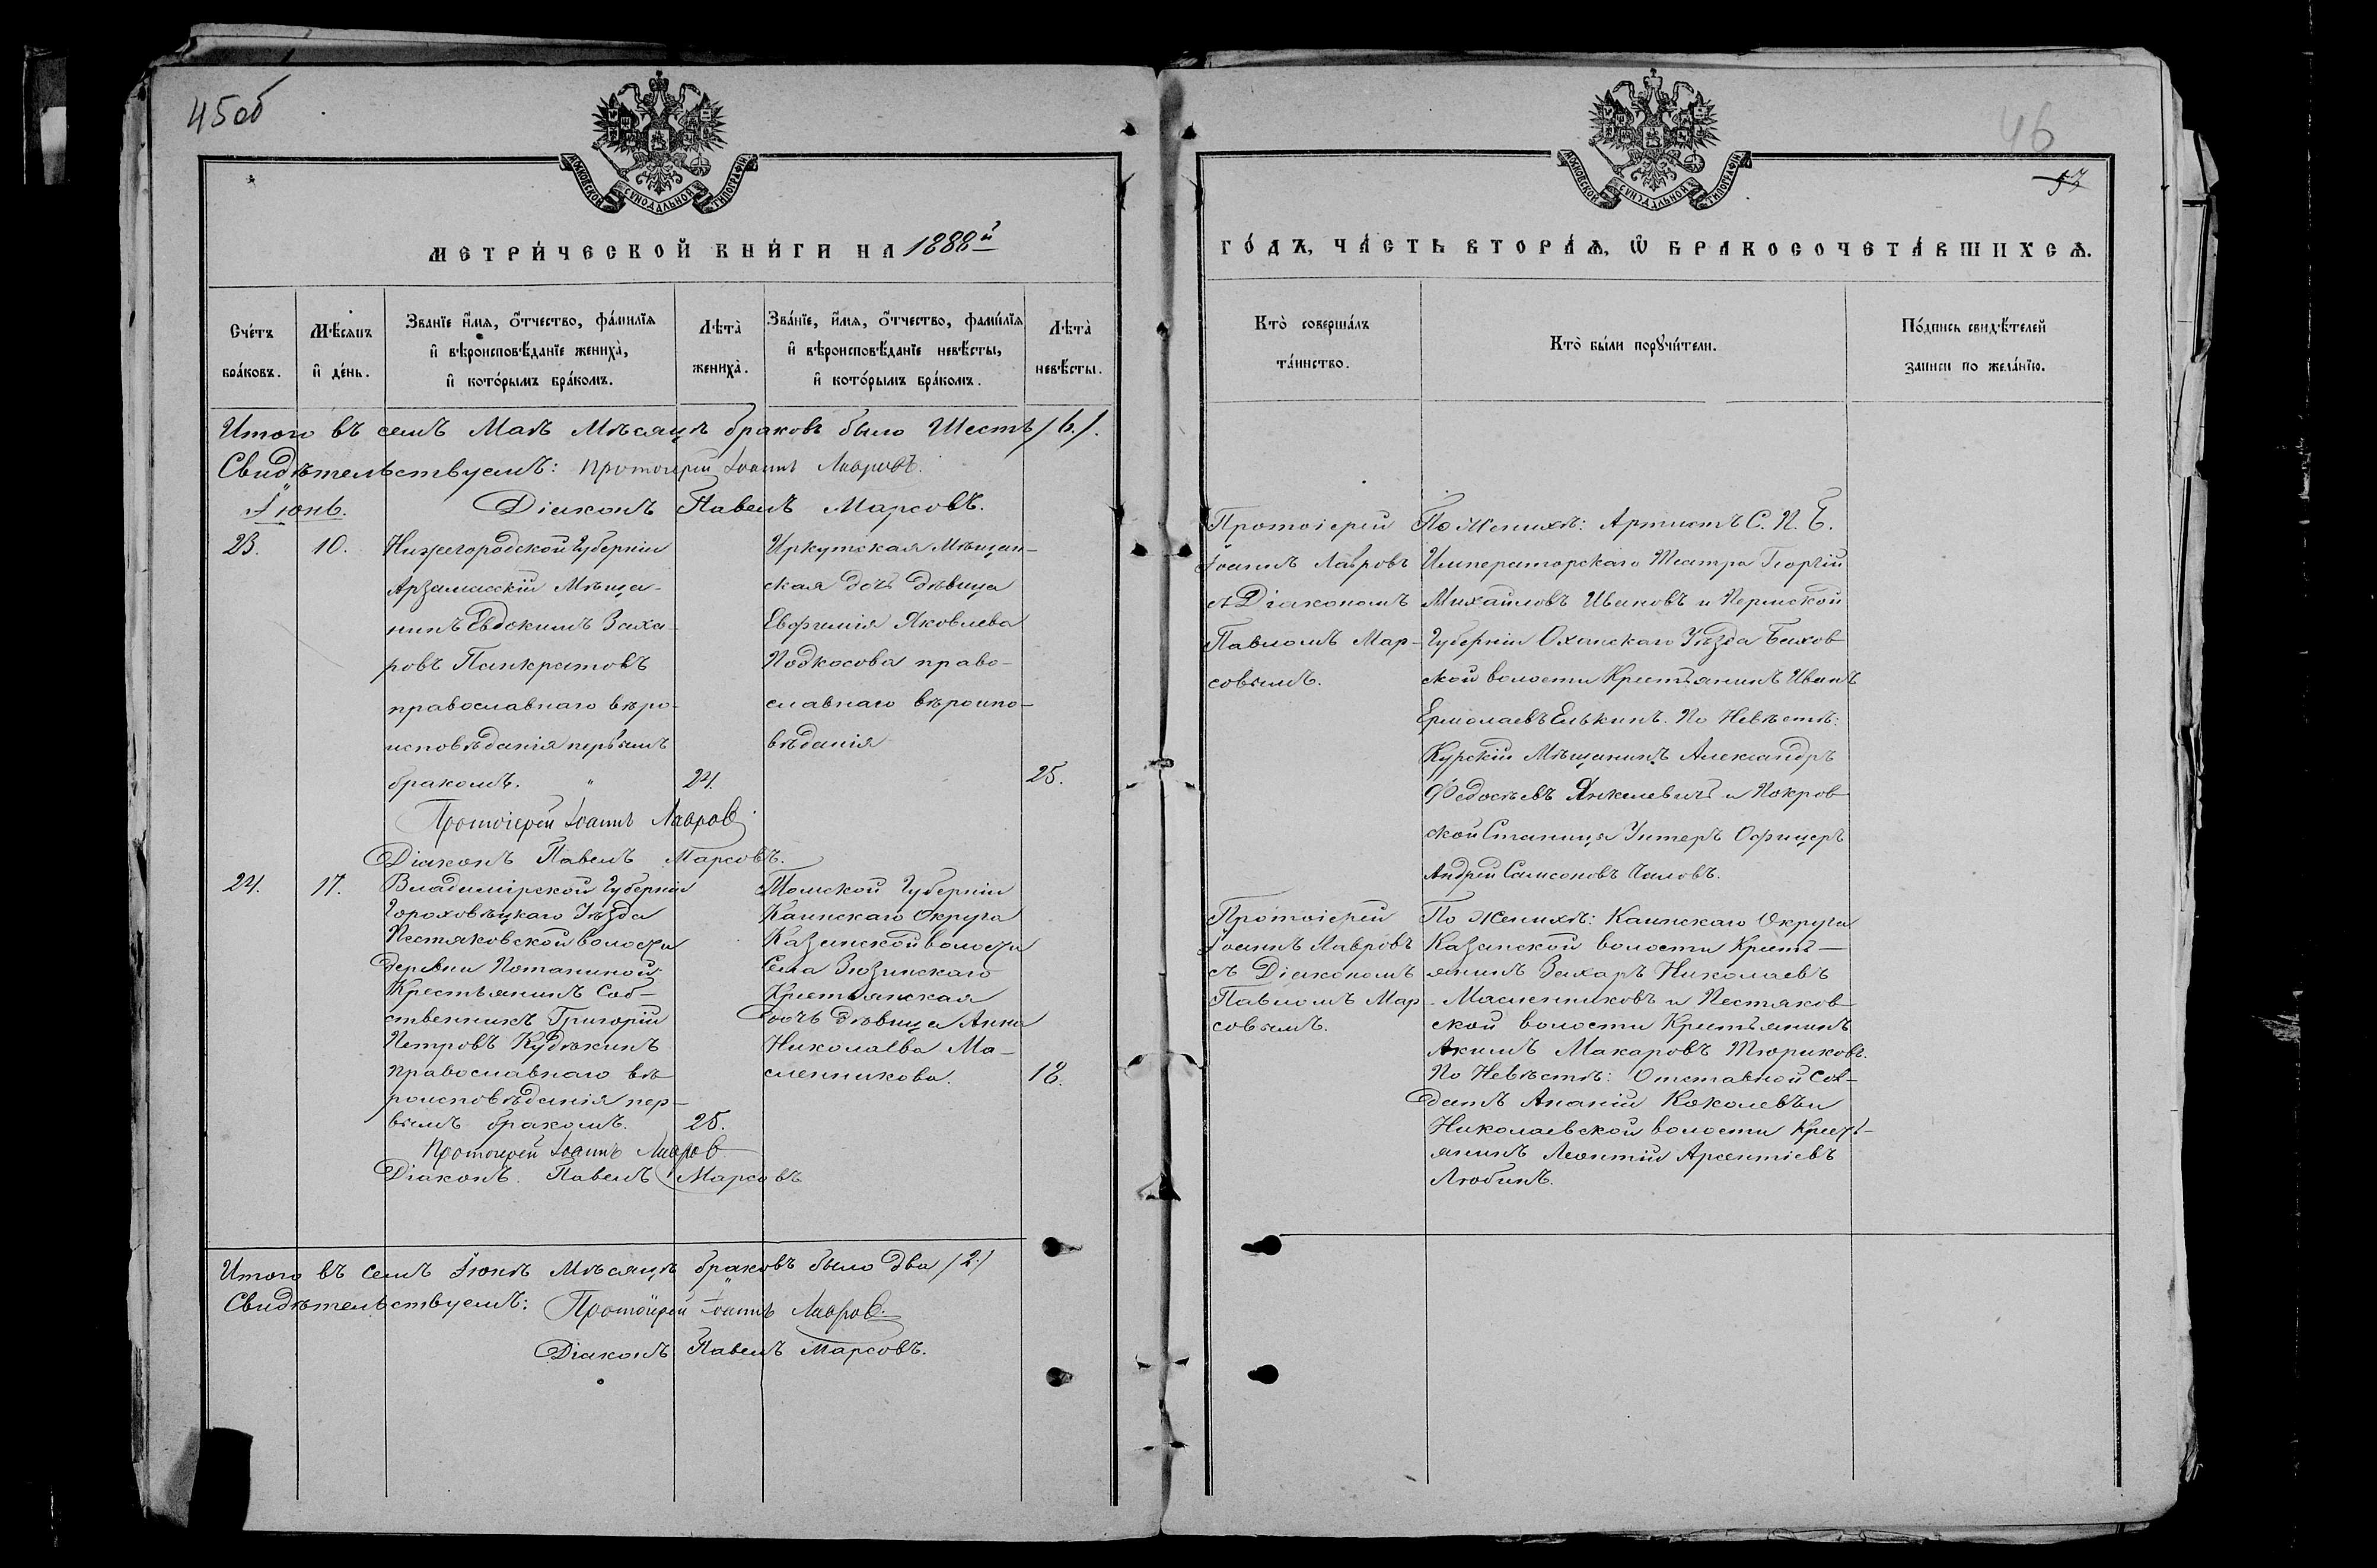 45об
МОСКОВСКОЙ СѴНОДАЛЬНОЙ ТИПОГРАФІИ
МЕТРИ́ЧЕСКОЙ КНИ́ГИ НА 1888й
Сче́тъ бра́ковъ.
Мѣ́сяцъ и҆ де́нь.
Зва́нїе и҆́мѧ, ѻ҆́тчество, фамилїѧ и҆ вѣроисповѣ́данїе женихà, и҆ кото́рымъ бра́комъ.
Лѣтà женихà.
Зва́нїе, и҆́мѧ, ѻ҆́тчество, фамилїѧ и҆ вѣроисповѣ́данїе невѣ́сты, и҆ кото́рымъ бра́комъ.
Лѣтà невѣ́сты.
Итого въ семъ Маѣ Мѣсяцѣ браковъ было Шесть /6./.
Свидѣтельствуемъ: Протоіерей Іоаннъ Лавровъ.
Діаконъ Павелъ Марсовъ.
Іюнь.
23.
10.
Нижегородской Губерніи
Арзамасскій Мѣща-
нинъ Евдокимъ Заха-
ровъ Панкратовъ
православнаго вѣро-
исповѣданія первымъ
бракомъ. "
24.
Иркутская Мѣщан-
ская дочь дѣвица
Евфимія Яковлева
Подкосова право-
славнаго вѣроиспо-
вѣданія
25.
Протоіерей Іоаннъ Лавров
Діаконъ Павелъ Марсовъ.
24.
17.
Владимірской Губерніи
Гороховѣцкаго Уѣзда
Пестяковской волости
деревни Потаниной
Крестьянинъ Соб-
ственникъ Григорій
Петровъ Кудѣкинъ
православнаго вѣ-
роисповѣданія пер-
вымъ бракомъ.
25.
Томской Губерніи
Каинскаго Округа
Казанской волости
Села Зюзинскаго
Крестьянская
дочь дѣвица Анна
Николаева Ма-
сленникова.
18.
Протоіерей Іоаннъ Лавров
Діаконъ. Павелъ Марсовъ
Итого въ семъ Іюнѣ Мѣсяцѣ браковъ было два /2/
Свидѣтельствуемъ: Протоіерей Іоаннъ Лавров.
Діаконъ Павелъ Марсовъ.
46
57
МОСКОВСКОЙ СѴНОДАЛЬНОЙ ТИПОГРАФІИ
ГО́ДЪ, ЧА́СТЬ ВТОРА́Ѧ, Ѡ҆ БРАКОСОЧЕТА́ВШИХСѦ.
Кто̀ соверша́лъ та́инство.
Кто̀ бы́ли порꙋчи́тели.
По́дпись свидѣ́телей записи по жела́нїю.
Протоіерей
Іоаннъ Лавровъ
съ Діакономъ
Павломъ Мар-
совымъ.
По Женихѣ: Артистъ С. П. Б.
Императорскаго Театра Георгій
Михаиловъ Ивановъ и Пермской
Губерніи Оханскаго Уѣзда Бахов-
ской волости Крестьянинъ Иванъ
Ермолаевъ Елькинъ. По Невѣстѣ:
Курскій Мѣщанинъ Александръ
Федосѣевъ Янкелевичъ и Покров-
ской Станицы Унтеръ Офицеръ
Андрей Самсоновъ Чаловъ.
Протоіерей
Іоаннъ Лавровъ
съ Діакономъ
Павломъ Мар-
совымъ.
По Женихѣ: Каинскаго Округа
Казанской волости Кресть-
янинъ Захаръ Николаевъ
Масленниковъ и Пестяков-
ской волости Крестьянинъ
Акимъ Макаровъ Тюриковъ.
По Невѣстѣ: Отставной Сол-
датъ Ананій Коколевъ и
Николаевской волости Кресть-
янинъ Леонтій Арсентіевъ
Любинъ.